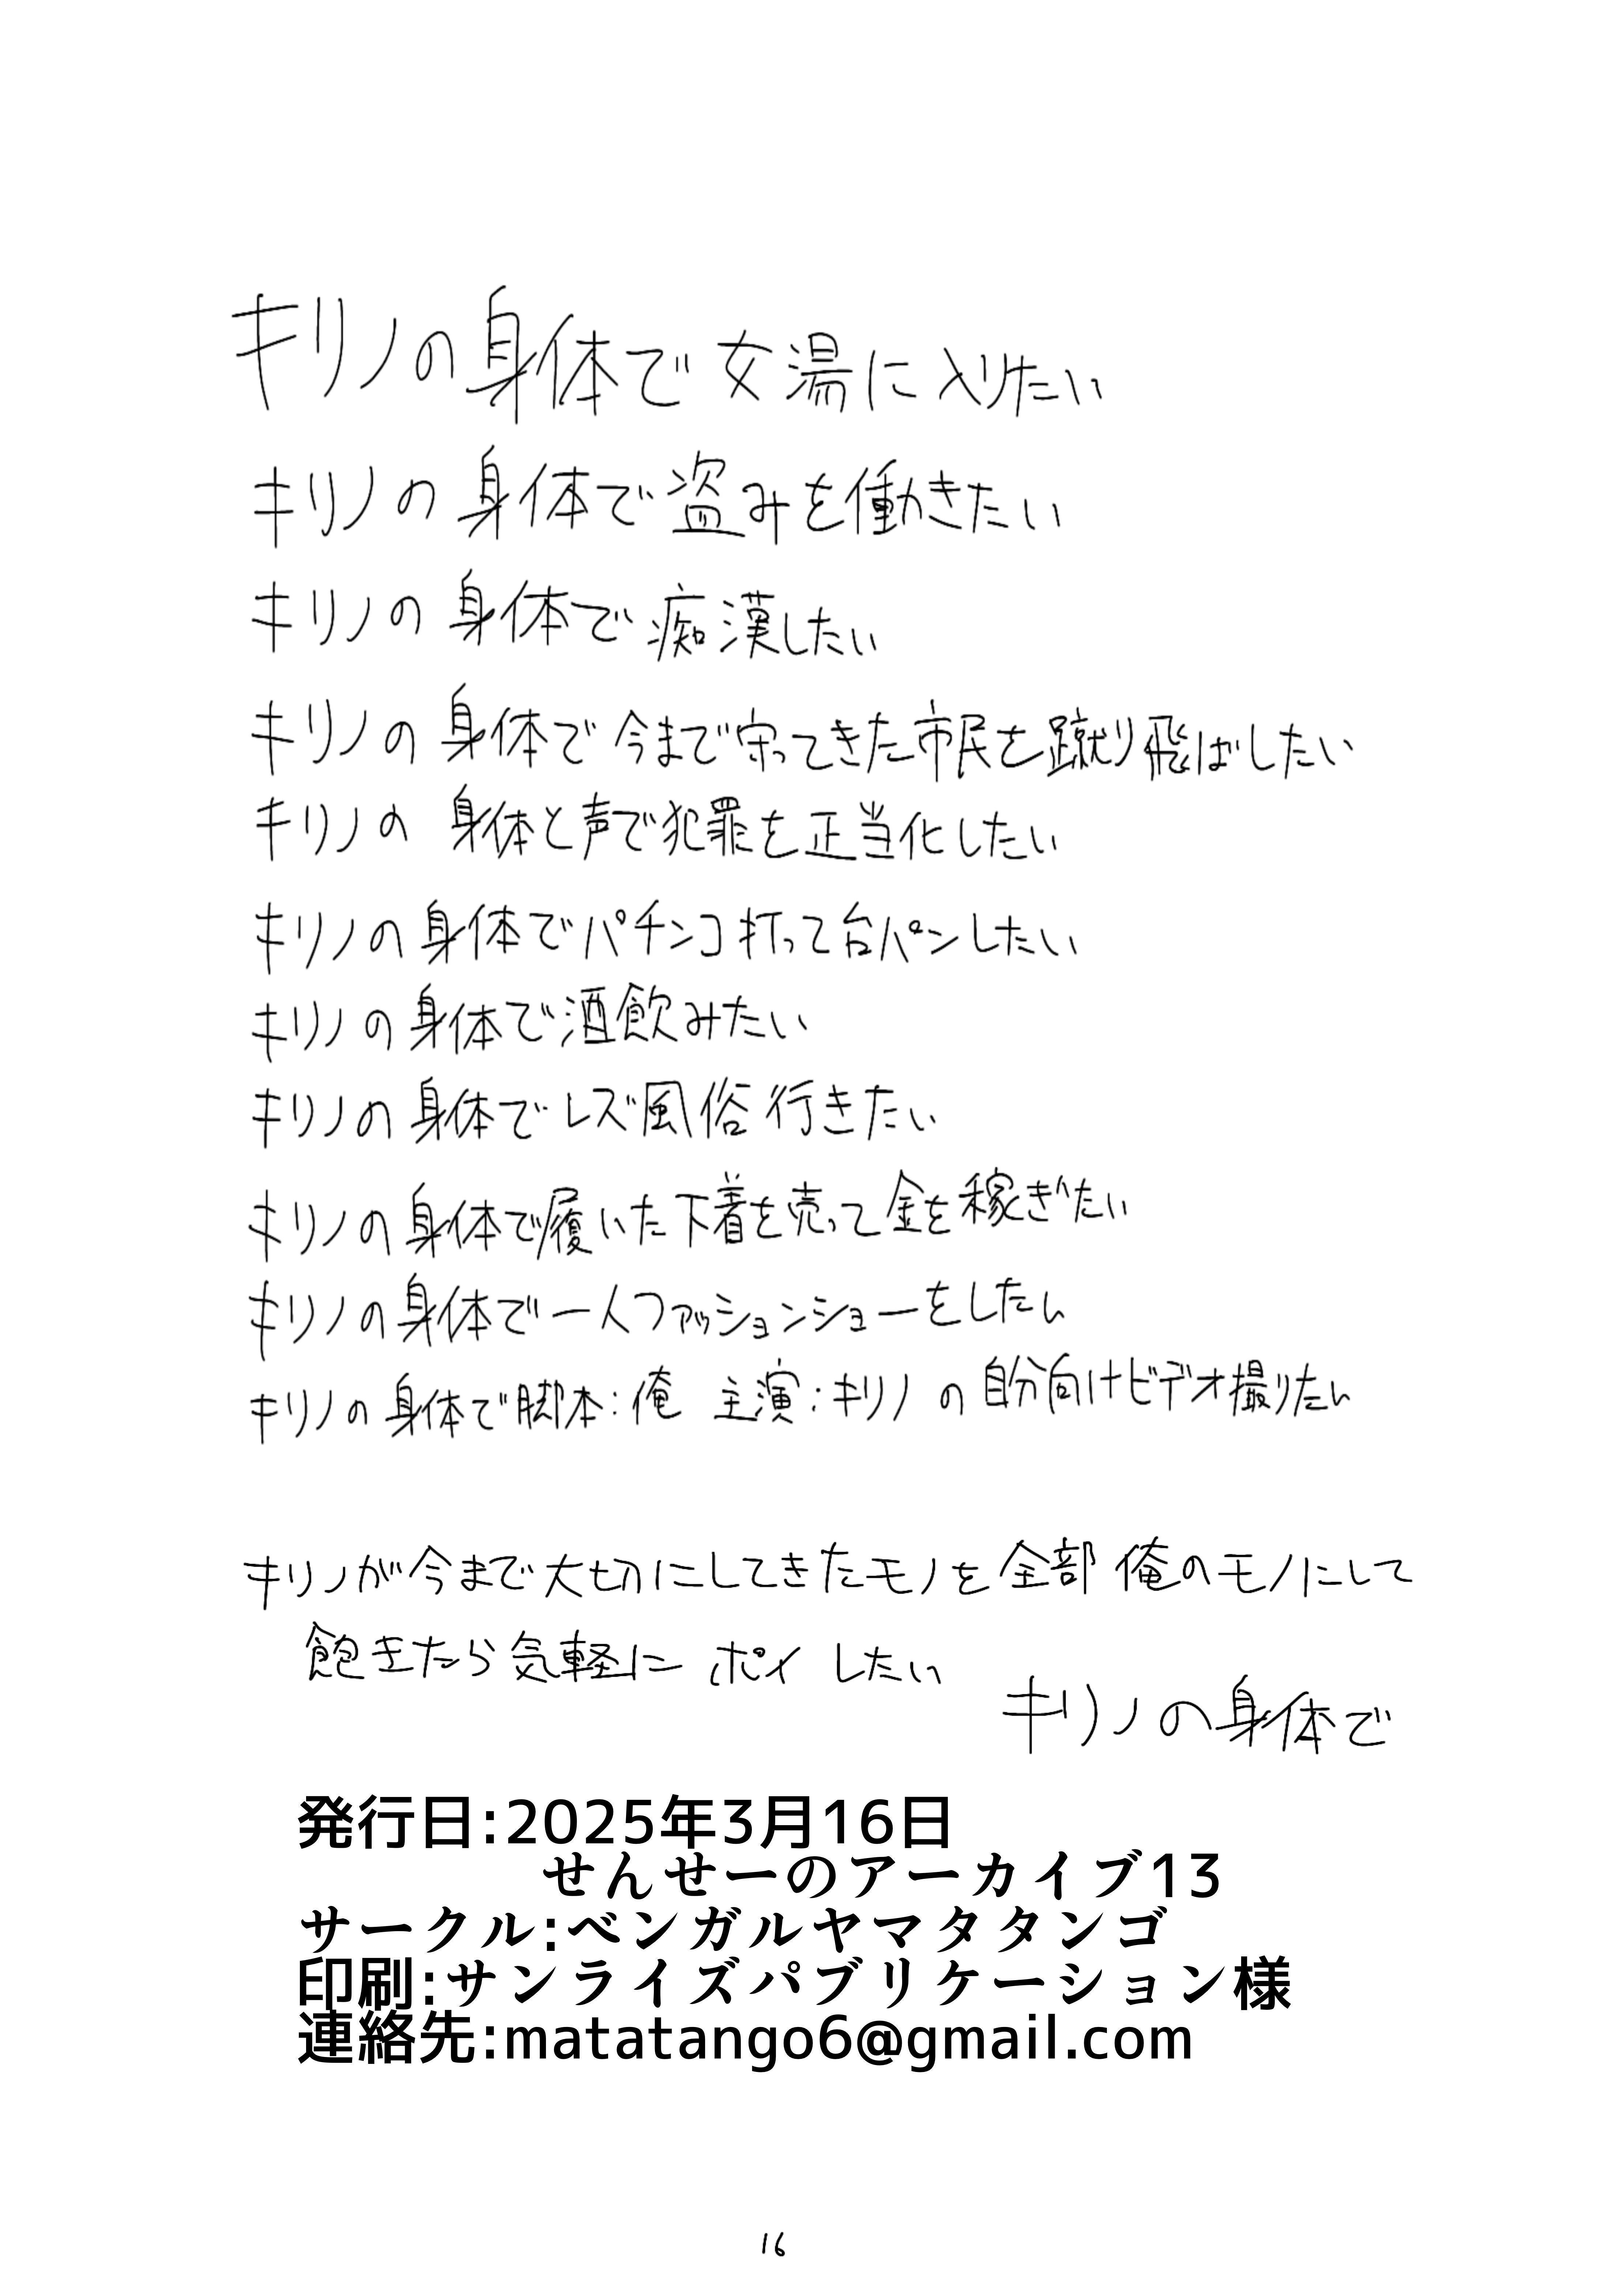 キリノの身体で女湯に入りたい
キリノの身体で盗みを働きたい
キリノの身体で痴漢したい
キリノの身体で今まで守ってきた市民を蹴り飛ばしたい
キリノの身体と声で犯罪を正当化したい
キリノの身体でパチンコ打って台パンしたい
キリノの身体で酒飲みたい
キリノの身体でレズ風俗行きたい
キリノの身体で履いた下着を売って金を稼ぎたい
キリノの身体で一人ファッションショーをしたい
キリノの身体で脚本:俺 主演:キリノの自分向けビデオ撮りたい
キリノが今まで大切にしてきたモノを全部俺のモノにして
飽きたら気軽にポイしたい
キリノの身体で
発行日:2025年3月16日
せんせーのアーカイブ13
サークル:ベンガルヤマタタンゴ
印刷:サンライズパブリケーション様
連絡先:matatango6@gmail.com
16